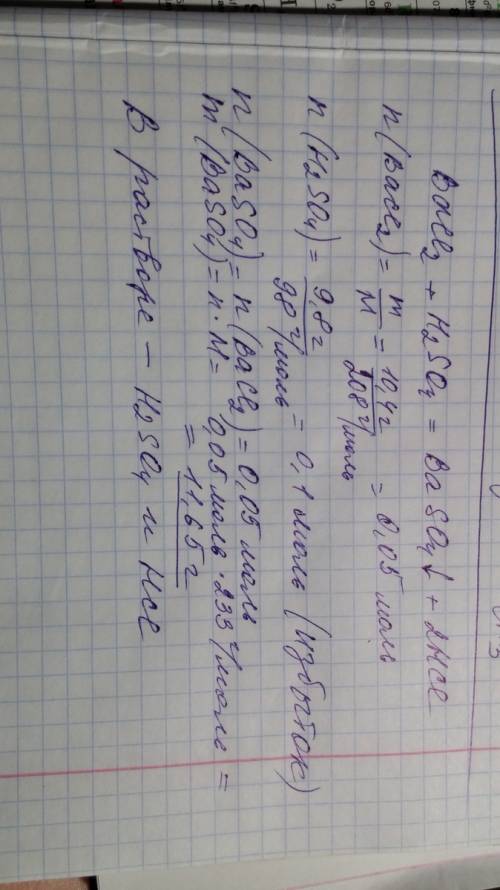 BaCl₂ + H₂SO₄ = BaSO₄↓ + 2HCl
n(BaCl₂) = m/M = 10,4г/208г/моль = 0,05 моль
n(H₂SO₄) = 9,8г/98г/моль = 0,1 моль (избыток)
n(BaSO₄) = n(BaCl₂) = 0,05 моль
m(BaSO₄) = n·M = 0,05 моль·233г/моль =
= 11,65 г
В растворе – H₂SO₄ и HCl